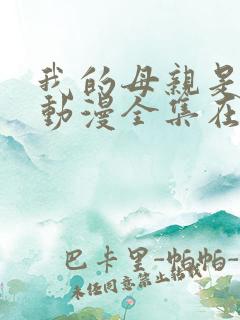 我的母親是
動漫全集在
巴卡里-帕帕-
未经同意禁止转载